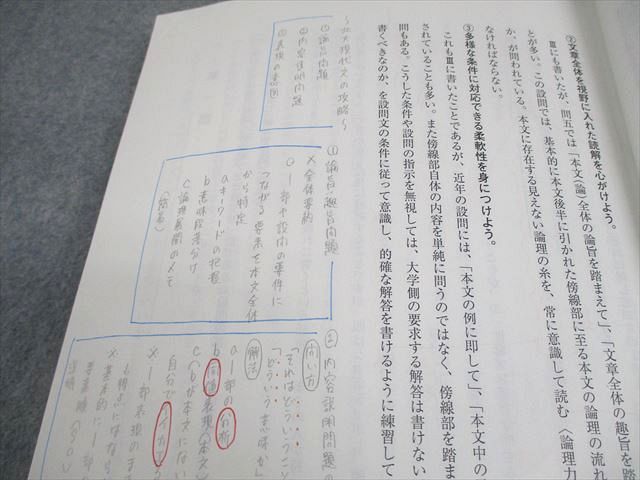 ②文章全体を視野に入れた読解を心がけよう。
Ⅲにも書いたが、問五では「本文（論）全体の論旨を踏まえて」、「文章全体の趣旨を踏
とが多い。この設問では、基本的に本文後半に引かれた傍線部に至る本文の論理の流
か、が問われている。本文に存在する見えない論理の糸を、常に意識して読む〈論理力
なければならない。
③多様な条件に対応できる柔軟性を身につけよう。
これもⅢに書いたことであるが、近年の設問には、「本文の例に即して」、「本文中の
されていることも多い。また傍線部自体の内容を単純に問うのではなく、傍線部を踏ま
問もある。こうした条件や設問の指示を無視しては、大学側の要求する解答は書けない
書くべきなのか、を設問文の条件に従って意識し、的確な解答を書けるように練習して
現代文の攻略〜
①論旨問題
②内容説明問題
③表現の意図
①論旨・趣旨問題
×全体要約
○ー部や設問の事件に
つながる要素を本文全体
から特定
aキーワードの把握
b意味段落分け
c論理展開のメモ
②内容説明問題の
問い方
「それはどういうこと
「どういう意味か」
解法
aー部の分析
b同値表現（本文
c（bが本文にない
自分で
×ー部表現のま